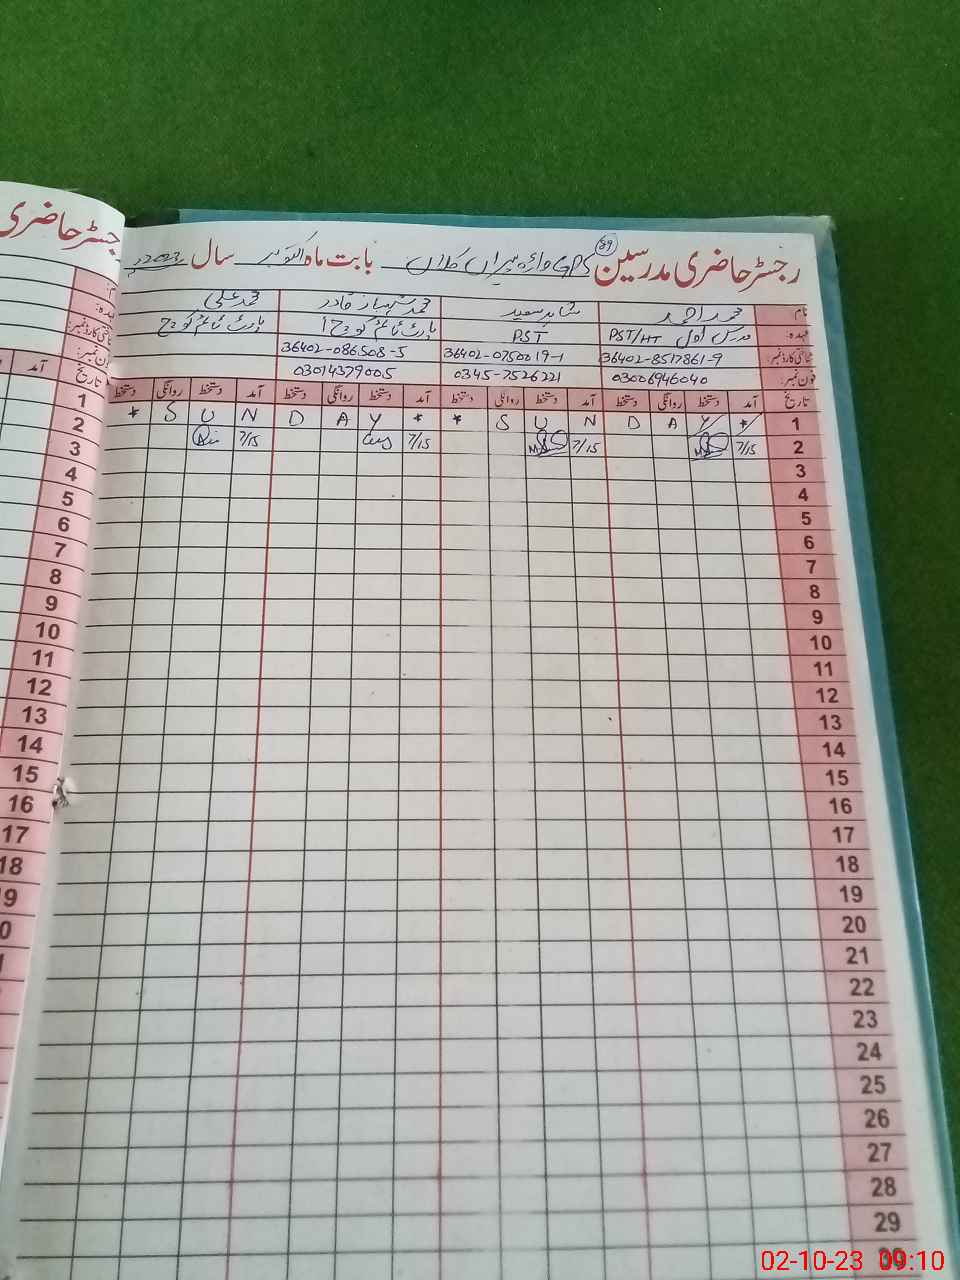 رجسٹر حاضری مدرسین GPS واڑہ پیراں کلاں بابت ماہ اکتوبر سال 2023ء
نام محمد احمد شاہد سعید محمد شہباز قادر محمد علی
عہدہ مدرس اول PST/HT PST
شناختی کارڈ نمبر: 36402-8517861-9 36402-0750019-1 36402-086508-5
فون نمبر: 03006946040 0345-7526221 03014379005
تاریخ آمد دستخط روانگی دستخط آمد دستخط روانگی دستخط آمد دستخط روانگی دستخط آمد دستخط روانگی دستخط
* S U N D A Y * * S U N D A Y * 1
7/15 7/15 7/15 7/15 2
3
4
5
6
7
8
9
10
11
12
13
14
15
16
17
18
19
20
21
22
23
24
25
26
27
28
29
30
رجسٹر حاضری
آمد تاریخ
1
2
3
4
5
6
7
8
9
10
11
12
13
14
15
16
17
18
02-10-23 09:10